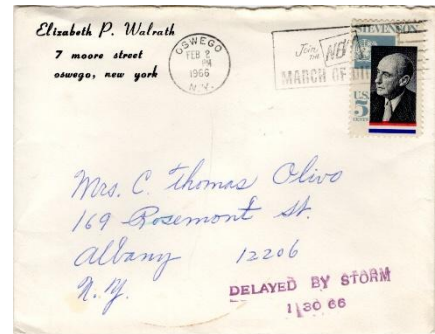 Elizabeth P. Walrath
7 moore street
oswego, new york
OSWEGO
FEB 2
PM
1966
N.Y.
Join
THE
MARCH OF
STEVENSON
U.S.
5
Mrs. C. Thomas Olivo
169 Rosemont St.
Albany 12206
N.Y.
DELAYED BY STORM
1 30 66